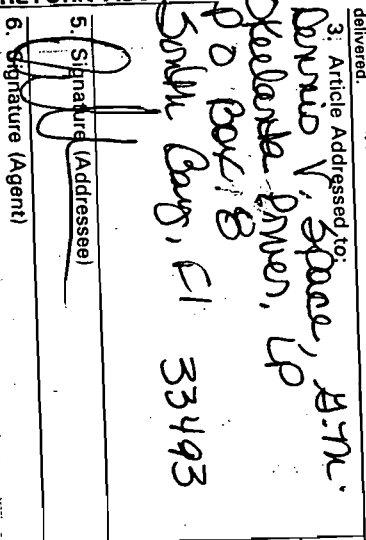 delivered.
3. Article Addressed to:
Dennis V. Space, G.M.
Okeelanta Power, LP
PO Box 8
South Bay, Fl 33493
5. Signature (Addressee)
6. Signature (Agent)